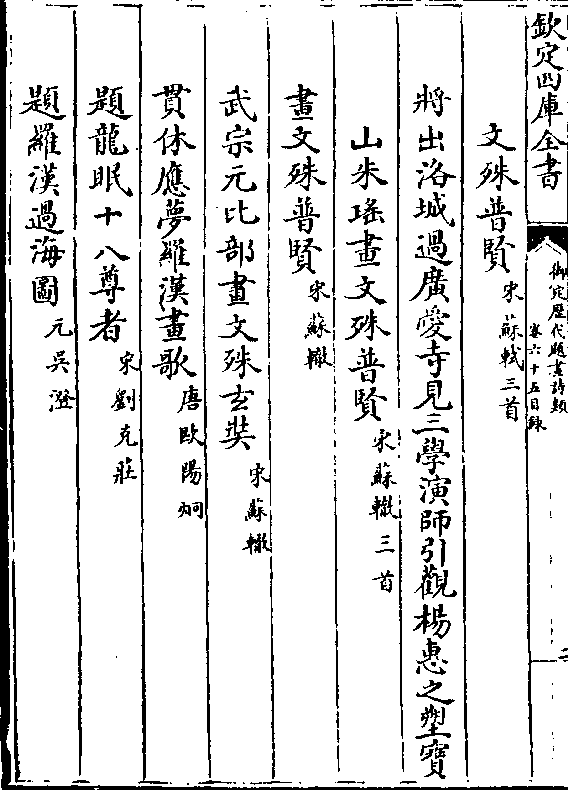 欽定四庫全書
御定歷代題畫詩類
卷六十五目錄
二
文殊普賢 宋蘇軾三首
將出洛城過廣愛寺見三學演師引觀楊惠之塑寶
山朱瑤畫文殊普賢 宋蘇轍三首
畫文殊普賢 宋蘇轍
武宗元比部畫文殊玄奘 宋蘇轍
貫休應夢羅漢畫歌 唐歐陽炯
題龍眠十八尊者 宋劉克莊
題羅漢過海圖 元吳澄